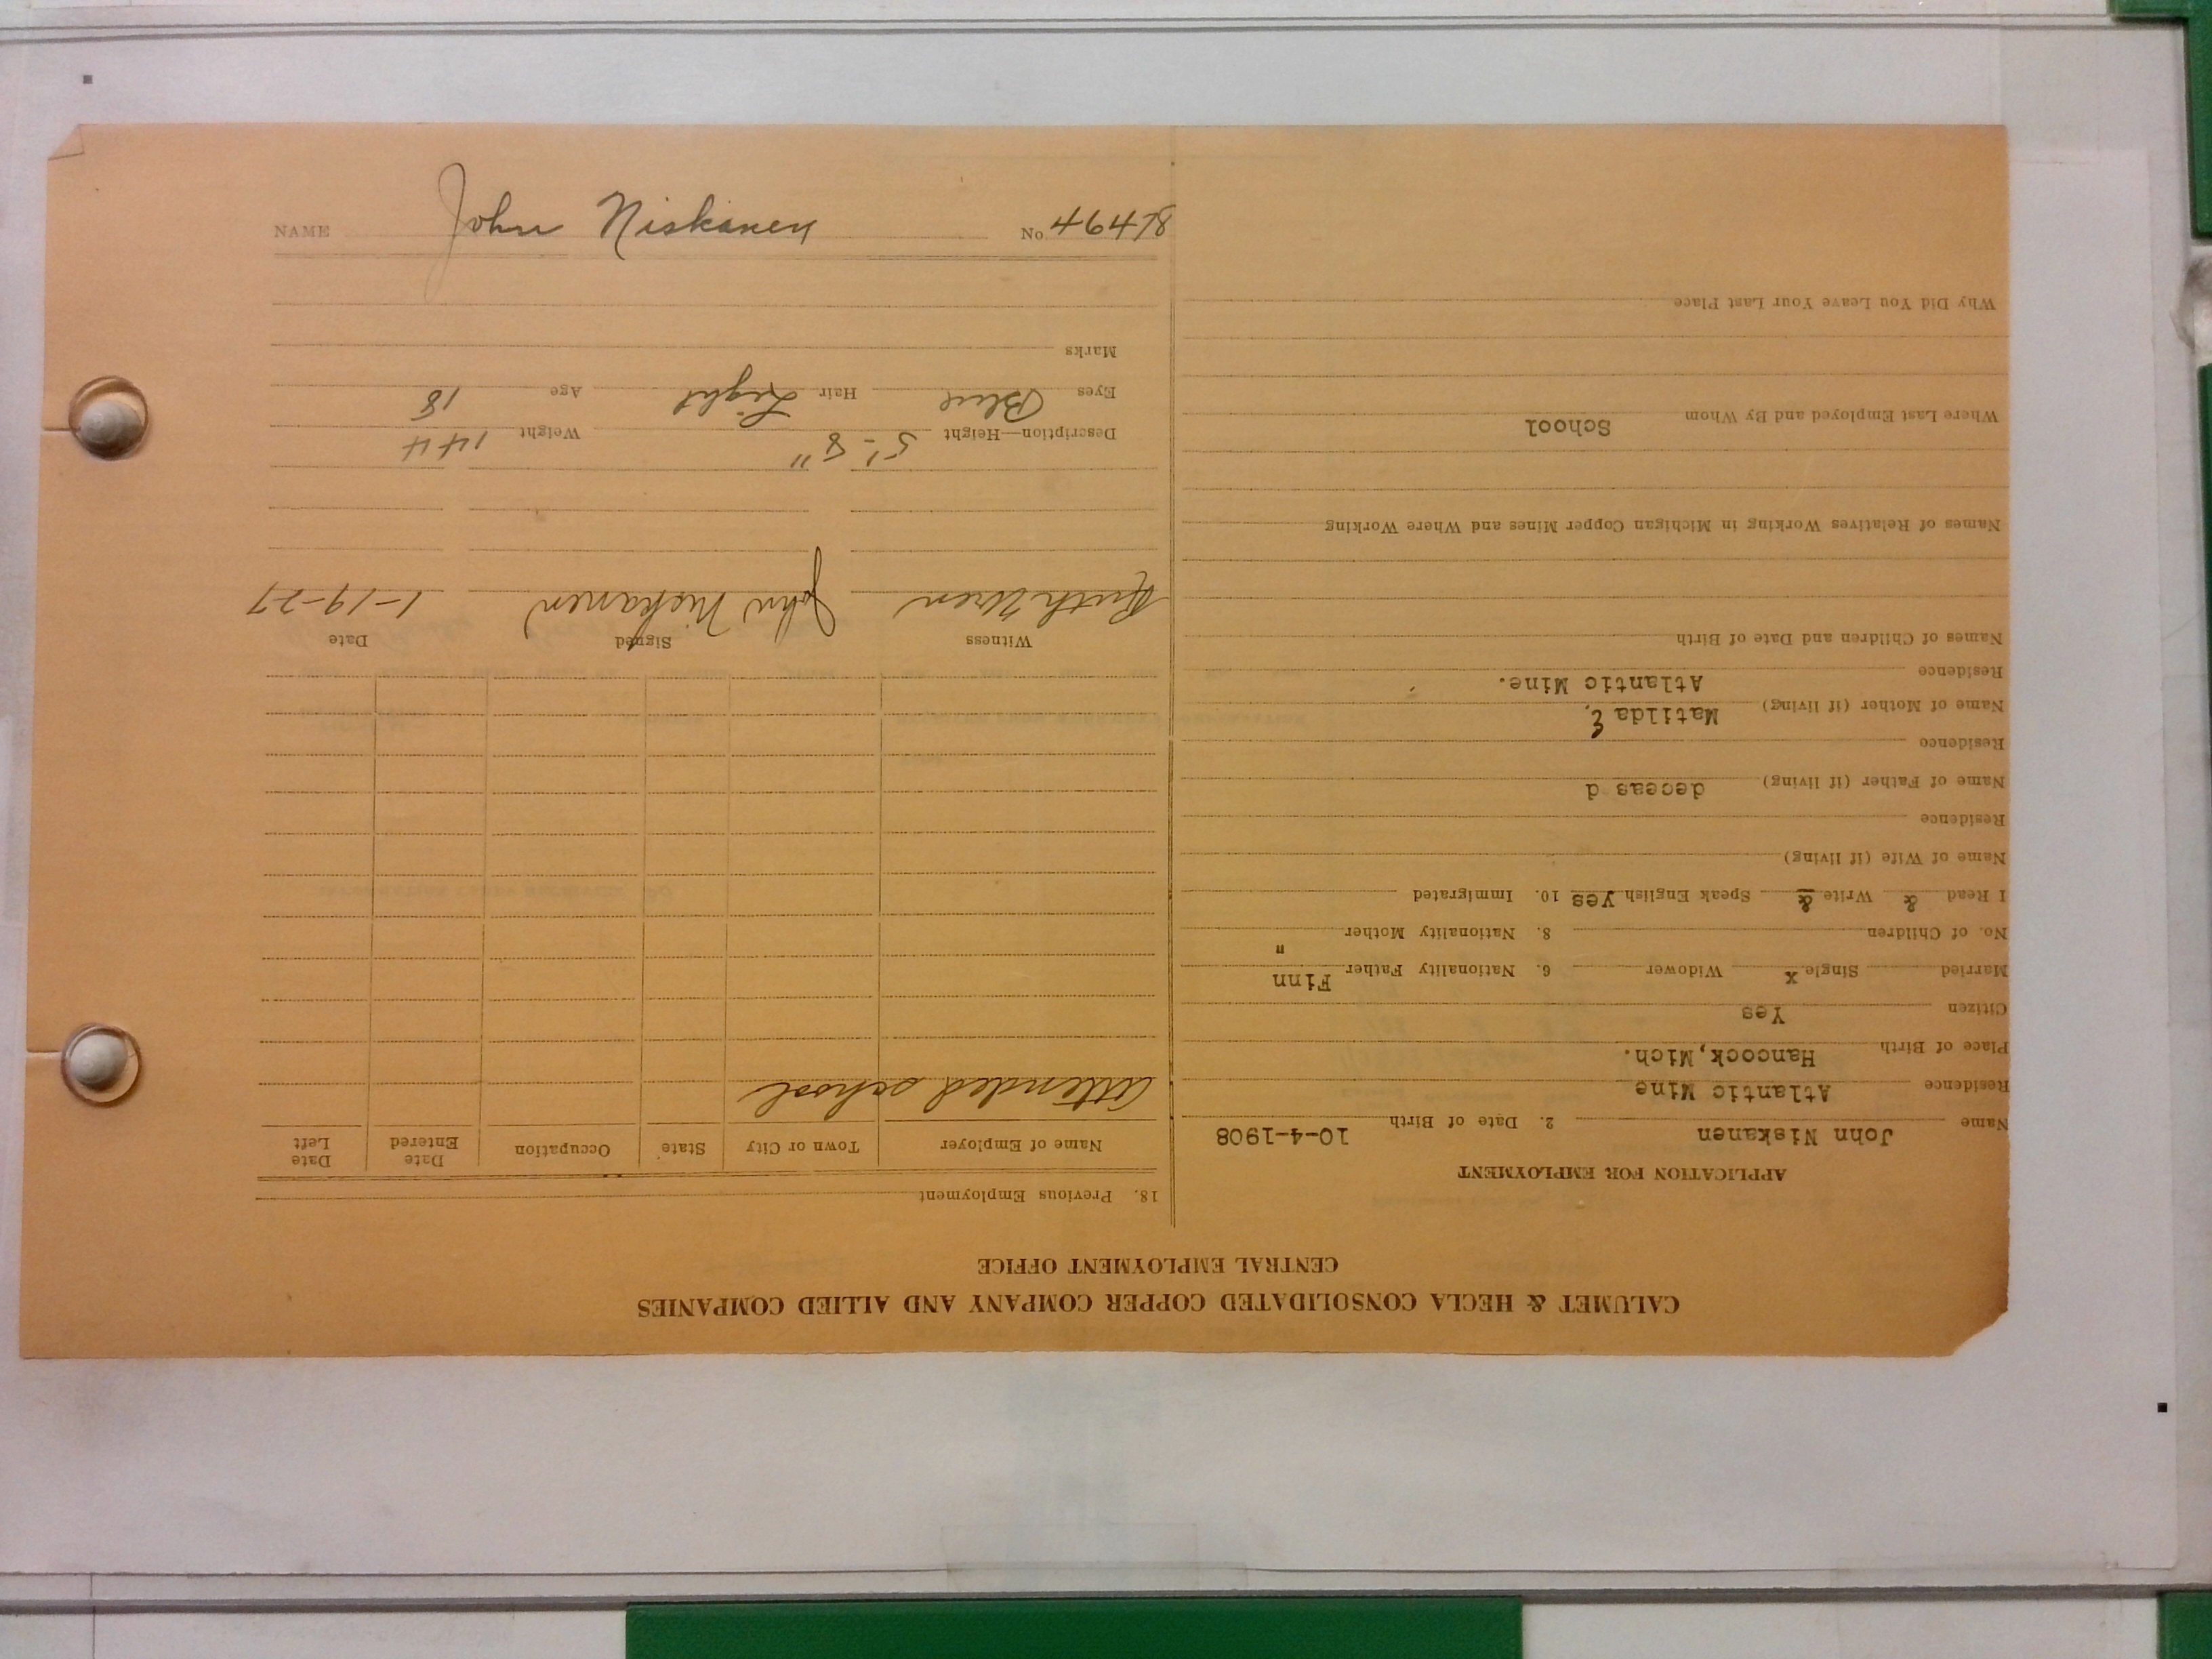 NAME John Niskanen No 46418
CALUMET & HECLA CONSOLIDATED COPPER COMPANY AND ALLIED COMPANIES
CENTRAL EMPLOYMENT OFFICE
APPLICATION FOR EMPLOYMENT
Name John Niskanen 2. Date of Birth 10-4-1908
Residence Atlantic Mine
Place of Birth Hancock, Mich.
Citizen Yes
Married Single x Widower 6. Nationality Father Finn
No. of Children 8. Nationality Mother "
I Read & Write & Speak English Yes 10. Immigrated
Name of Wife (if living)
Residence
Name of Father (if living) deceas d
Residence
Name of Mother (if living) Matilda
Residence Atlantic Mine.
Names of Children and Date of Birth
Names of Relatives Working in Michigan Copper Mines and Where Working
Where Last Employed and By Whom School
Why Did You Leave Your Last Place
18. Previous Employment
Name of Employer Town or City State Occupation Date Entered Date Left
Attended school
Witness Signed Date
Ruth Uren John Niskanen 1-19-27
Description—Height 5'-8" Weight 144
Eyes Blue Hair Light Age 18
Marks